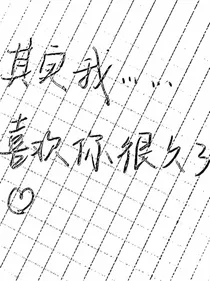 其实我……
喜欢你很久了
♡